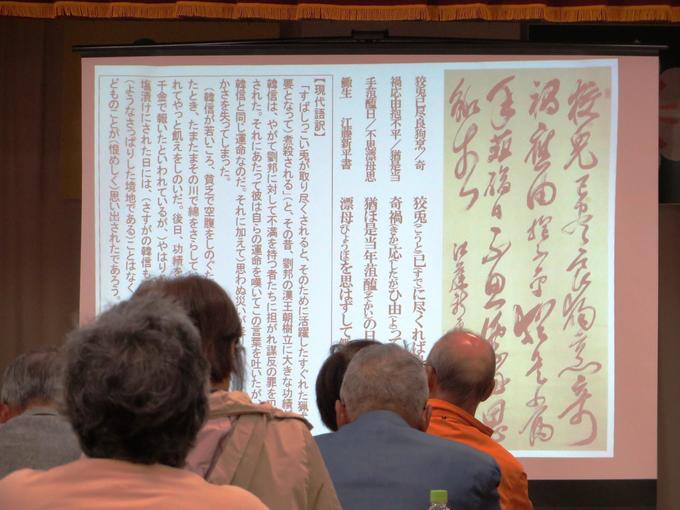 狡兎已盡良狗烹奇
禍應由抱不平猶是當
年菹醢日不思漂母思
鯫生 江藤新平
狡兎已尽良狗烹/奇
禍応由抱不平/猶是当
年菹醢日/不思漂母思
鯫生 江藤新平書
狡兎(こうと)已(すで)に尽くれば
奇禍(きか)応(したが)ひ由(よっ
猶ほ是当年菹醢(そかい)の日
漂母(ひょうぼ)を思はずして
【現代語訳】
「すばしっこい兎が取り尽くされると、そのために活躍したすぐれた猟
要となって)煮殺される」と、その昔、劉邦の漢王朝樹立に大きな功績
韓信は、やがて劉邦に対して不満を持つ者たちに担がれ謀反の罪を
された。それにあたって彼は自らの運命を嘆いてこの言葉を吐いたが、
韓信と同じ運命なのだ。それに加えて)思わぬ災いが
かさを失ってしまった。
(韓信が若いころ、貧乏で空腹をしのぐ
たとき、たまたまその川で綿をさらして
れてやっと飢えをしのいだ。後日、功績を
千金で報いたといわれているが、やはり
塩漬けにされた日には、(さすがの韓信も
(ようなさっぱりした境地である)ことはなく
どものことが(恨めしく)思い出されたであろう。